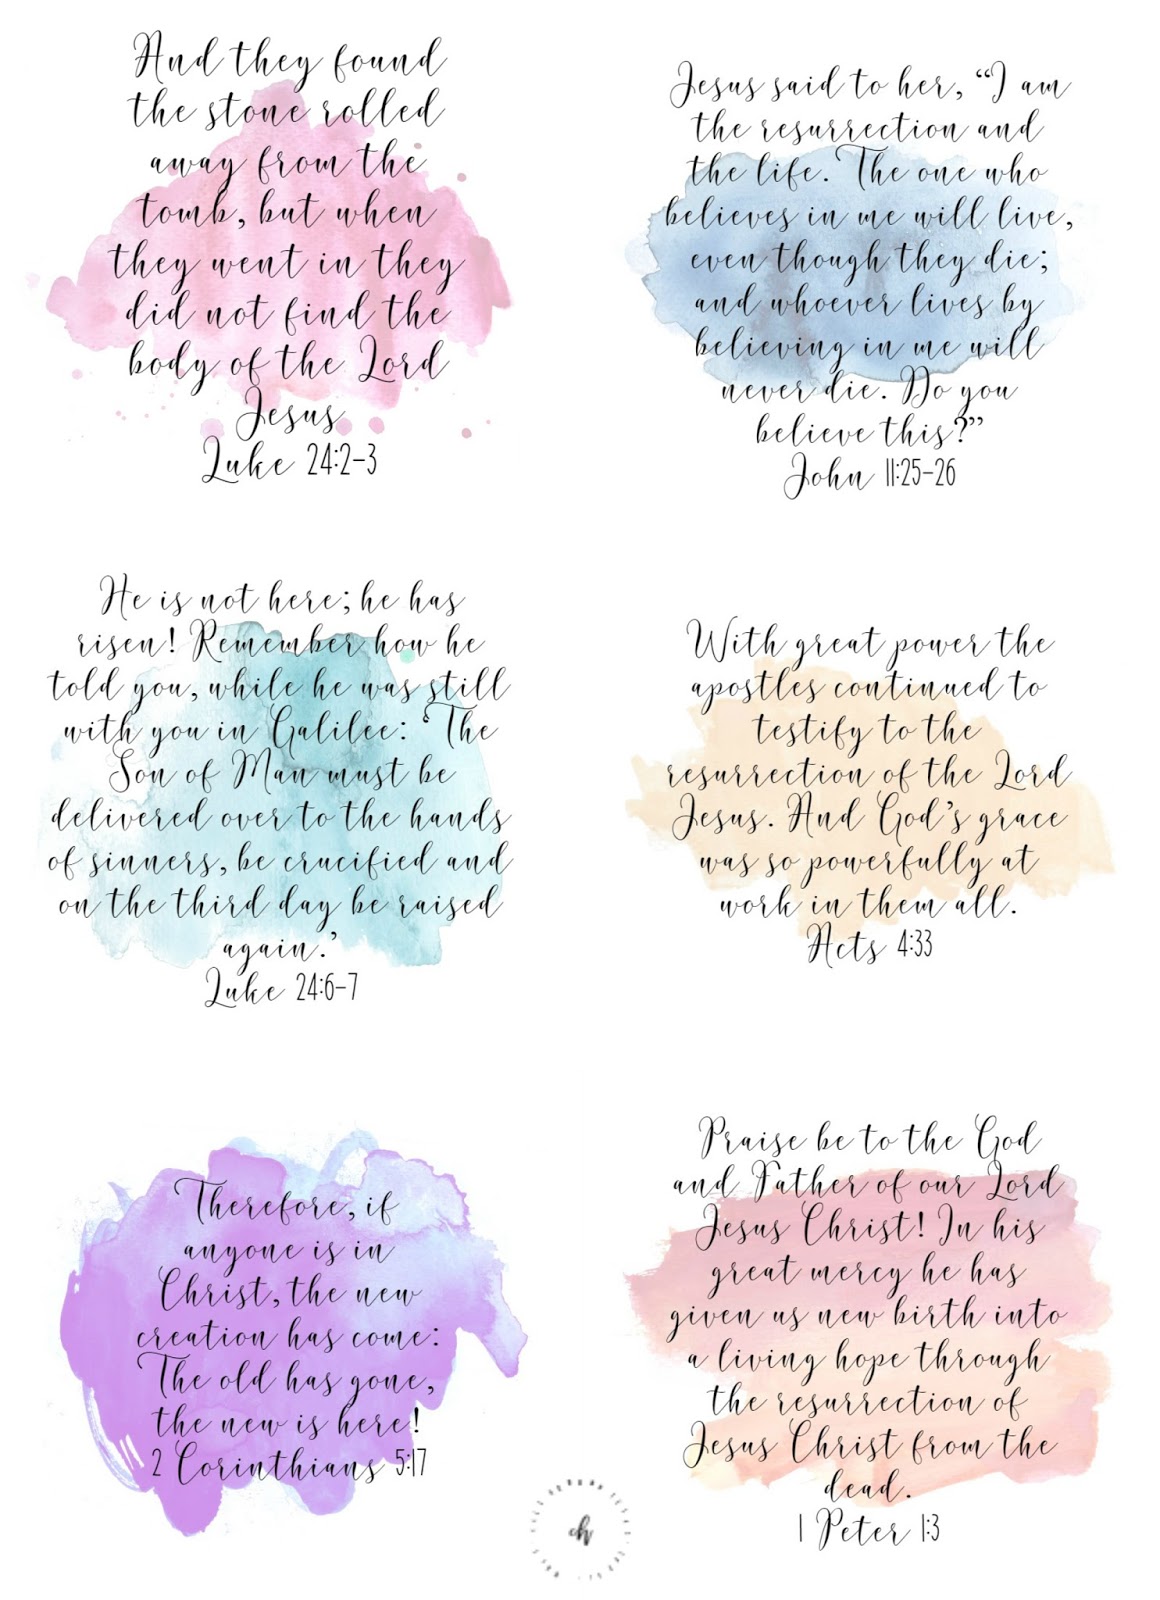 And they found
the stone rolled
away from the
tomb, but when
they went in they
did not find the
body of the Lord
Jesus
Luke 24:2-3
Jesus said to her, “I am
the resurrection and
the life. The one who
believes in me will live,
even though they die;
and whoever lives by
believing in me will
never die. Do you
believe this?”
John 11:25-26
He is not here; he has
risen! Remember how he
told you, while he was still
with you in Galilee: ‘The
Son of Man must be
delivered over to the hands
of sinners, be crucified and
on the third day be raised
again.’
Luke 24:6-7
With great power the
apostles continued to
testify to the
resurrection of the Lord
Jesus. And God’s grace
was so powerfully at
work in them all.
Acts 4:33
Therefore, if
anyone is in
Christ, the new
creation has come:
The old has gone,
the new is here!
2 Corinthians 5:17
Praise be to the God
and Father of our Lord
Jesus Christ! In his
great mercy he has
given us new birth into
a living hope through
the resurrection of
Jesus Christ from the
dead.
1 Peter 1:3
ch